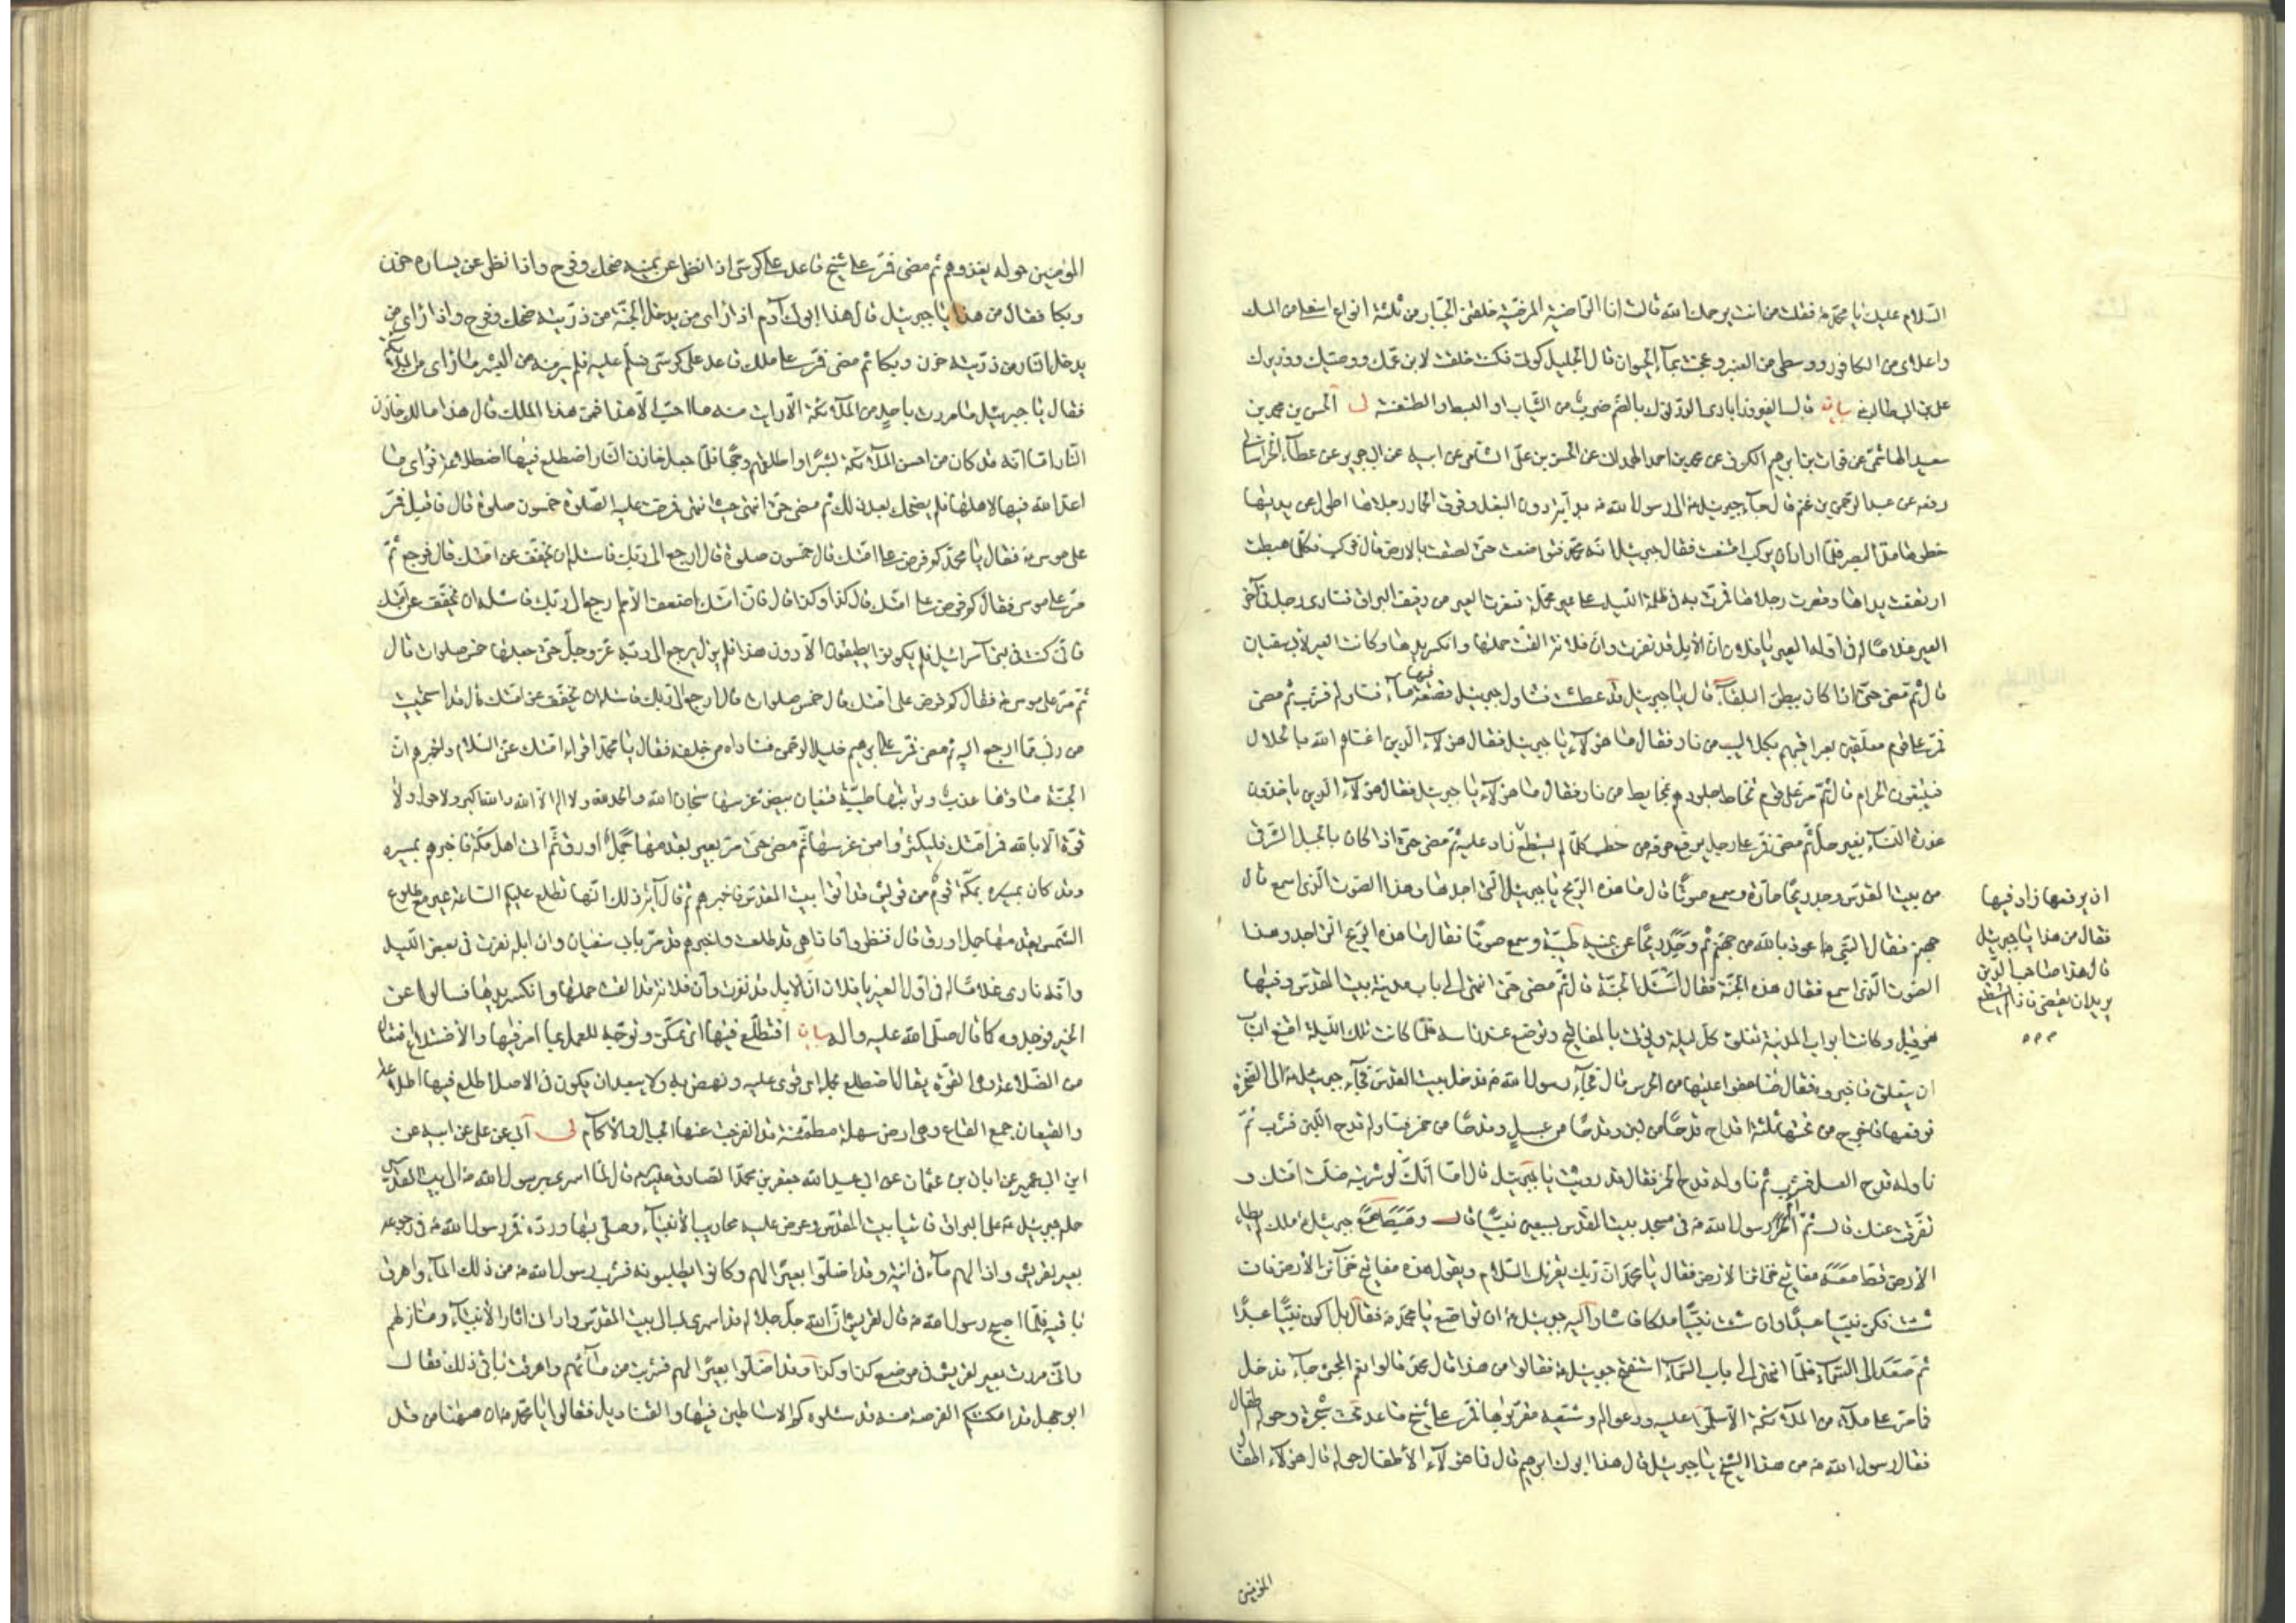 السّلام عليك يا محمّد فقلت من انت يرحمك الله قالت انا الرّاضية المرضيّة خلقنى الجبّار من ثلثة انواع اسفلى من المسك
واعلاى من الكافور ووسطى من العنبر وعجنت بمآء الحيوان قال الجليل كونى فكنت خلقت لابن عمّك ووصيّك ووزيرك
على بن ابى طالب بيان قال الفيروزابادى الدرنوك بالضم ضرب من الثياب او البسط والطنفسة لى الحسن بن محمد بن
سعيد الهاشمى عن فرات بن ابرهيم الكوفى عن محمد بن احمد الهمدانى عن الحسن بن علىّ الشامى عن ابيه عن ابى جرير عن عطآء الخراسانى
رفعه عن عبد الرّحمن بن غنم قال جآء جبرئيل الى رسول الله بدآبة دون البغل وفوق الحمار رجلاها اطول من يديها
خطوها مدّ البصر فلمّا اراد ان يركب امتنعت فقال جبرئيل انّه محمّد فتواضعت حتّى لصقت بالارض قال فركب فكلّما هبطت
ارتفعت يداها وقصرت رجلاها فمرّت به فى ظلمة اللّيل على عير محمّلة فنفرت العير من دفيف البراق فنادى رجل فى آخر
العير غلامًا له فى اوّل العير يا فلان انّ الابل قد نفرت وانّ فلانة القت حملها وانكسر يدها وكانت العير لابى سفيان
قال ثم مضى حتّى اذا كان ببطن البلقآء قال يا جبرئيل قد عطشت فتناول جبرئيل قصعة فيها مآء فناوله فشرب ثم مضى
فمرّ على قوم معلّقين بعراقيبهم بكلاليب من نار فقال ما هؤلآء يا جبرئيل فقال هؤلآء الّذين اغناهم الله بالحلال
فيبتغون الحرام قال ثمّ مرّ على قوم تخاط جلودهم بمخايط من نار فقال ما هؤلآء يا جبرئيل فقال هؤلآء الّذين ياخذون
عذرة النّسآء بغير حلّ ثم مضى فمرّ على رجل يرفع حزمة من حطب كلّما لم يستطع زاد عليه ثم مضى حتّى اذا كان بالجبل الشّرقى
من بيت المقدس وجد ريحًا حارّة وسمع صوتًا قال ما هذه الرّيح يا جبرئيل الّتى اجدها وهذا الصّوت الّذى اسمع قال
جهنم فقال النّبى اعوذ بالله من جهنّم ثم وجد ريحًا عن يمينه طيّبة وسمع صوتًا فقال ما هذه الرّيح الّتى اجد وهذا
الصّوت الّذى اسمع فقال هذه الجنّة فقال اسئل الله الجنّة قال ثمّ مضى حتّى انتهى الى باب مدينة بيت المقدس وفيها
هرقل وكانت ابواب المدينة تغلق كلّ ليلة ويؤتى بالمفاتيح وتوضع عند راسه فلمّا كانت تلك اللّيلة امتنع الباب
ان ينغلق فاخبروه فقال ضاعفوا عليها من الحرس قال فجآء رسول الله فدخل بيت المقدس فجآء جبرئيل الى الصّخرة
فرفعها فاخرج من تحتها ثلثة اقداح قدحًا من لبن وقدحًا من عسل وقدحًا من خمر فناوله قدح اللّبن فشرب ثمّ
ناوله قدح العسل فشرب ثم ناوله قدح الخمر فقال قد رويت يا جبرئيل قال امّا انّك لو شربته ضلّت امّتك و
تفرّقت عنك قال ثمّ امّ رسول الله فى مسجد بيت المقدس بسبعين نبيًّا قال وهبط مع جبرئيل ملك لم يطاء
الارض قطّ معه مفاتيح خزائن الارض فقال يا محمّد انّ ربّك يقرئك السّلام ويقول هذه مفاتيح خزآئن الارض فان
شئت فكن نبيًّا عبدًا وان شئت نبيًّا ملكا فاشار اليه جبرئيل ان تواضع يا محمّد فقال بل اكون نبيًّا عبدًا
ثمّ صعد الى السّمآء فلمّا انتهى الى باب السّمآء استفتح جبرئيل فقالوا من هذا قال محمّد قالوا نعم المجئ جآء فدخل
فما مرّ على ملاء من الملآئكة الّا سلّموا عليه ودعوا له وشيّعه مقرّبوها فمرّ على شيخ قاعد تحت شجرة وحوله اطفال
فقال رسول الله من هذا الشيخ يا جبرئيل قال هذا ابوك ابرهيم قال فما هؤلآء الاطفال حوله قال هؤلآء اطفال
ان يرفعها زاد فيها
فقال من هذا يا جبرئيل
قال هذا صاحب الدين
يريد ان يقضى فاذا لم يستطع
المؤمنين
المؤمنين حوله يغذوهم ثم مضى فمرّ على شيخ قاعد على كرسى اذا نظر عن يمينه ضحك وفرح واذا نظر عن يساره حزن
وبكا فقال من هذا يا جبرئيل قال هذا ابوك آدم اذا راى من يدخل الجنّة من ذرّيته ضحك وفرح واذا راى من
يدخل النّار من ذرّيته حزن وبكا ثم مضى فمرّ على ملك قاعد على كرسى فسلّم عليه فلم ير منه من البشر ما راى من الملآئكة
فقال يا جبرئيل ما مررت باحد من الملآئكة الّا رايت منه ما احبّ الّا هذا فمن هذا الملك قال هذا مالك خازن
النّار امّا انّه قد كان من احسن الملآئكة بشرًا واطلقهم وجهًا فلمّا جعل خازن النّار اضطلع فيها اضطلاعة فراى ما
اعدّ الله فيها لاهلها فلم يضحك بعد ذلك ثم مضى حتّى انتهى حيث انتهى فرضت عليه الصّلوة خمسون صلوة قال فاقبل فمرّ
على موسى فقال يا محمّد كم فرض على امّتك قال خمسون صلوة قال ارجع الى ربّك فاسئله ان يخفّف عن امّتك قال فرجع ثمّ
مرّ على موسى فقال كم فرض على امّتك قال كذا وكذا قال فانّ امّتك اضعف الامم ارجع الى ربّك فاسئله ان يخفّف عن امّتك
فانّى كنت فى بنى آسرائيل فلم يكونوا يطيقون الّا دون هذا فلم يزل يرجع الى ربّه عزّ وجلّ حتّى جعلها خمس صلوات قال
ثم مرّ على موسى فقال كم فرض على امّتك قال خمس صلوات قال ارجع الى ربّك فاسئله ان يخفّف عن امّتك قال قد استحييت
من ربّى ممّا ارجع اليه ثم مضى فمرّ على ابرهيم خليل الرحمن فناداه من خلفه فقال يا محمّد اقراء امّتك عنّى السّلام واخبرهم انّ
الجنّة مآؤها عذب وتربتها طيّبة قيعان بيض غرسها سبحان الله والحمد لله ولا اله الّا الله والله اكبر ولا حول ولا
قوّة الّا بالله فمر امّتك فليكثروا من غرسها ثم مضى حتّى مرّ بعير يقدمها جمل اورق ثم اتى اهل مكّة فاخبرهم بمسيره
وقد كان بمكّة قوم من قريش قد اتوا بيت المقدس فاخبرهم ثم قال آية ذلك انّها تطلع عليكم السّاعة عير مع طلوع
الشّمس يقدمها جمل اورق قال فنظروا فاذا هى قد طلعت واخبرهم انّه قد مرّ بابى سفيان وان ابله نفرت فى بعض اللّيل
وانّه نادى غلامًا له فى اوّل العير يا فلان انّ الابل قد نفرت وان فلانة قد القت حملها وانكسر يدها فسالوا عن
الخبر فوجدوه كما قال صلّى الله عليه واله بيان اضطلع فيها اى تمكّن وتوجّه للعمل بما امر فيها والاضطلاع افتعال
من الضّلاعة وهى القوّة يقال اضطلع بحمله اى قوى عليه ونهض به ولا يبعد ان يكون فى الاصل اطلع فيها اطلاعة
والقيعان جمع القاع وهى ارض سهلة مطمئنة قد انفرجت عنها الجبال والآكام لى ابى عن على عن ابيه عن
ابن ابى عمير عن ابان بن عثمان عن ابى عبد الله جعفر بن محمّد الصّادق قال لمّا اسرى برسول الله الى بيت المقدس
حمله جبرئيل على البراق فاتيا بيت المقدس وعرض عليه محاريب الانبيآء وصلّى بها وردّه فمرّ رسول الله فى رجوعه
بعير لقريش واذا لهم مآء فى انية وقد اضلّوا بعيرًا لهم وكانوا يطلبونه فشرب رسول الله من ذلك المآء واهرق
باقيه فلمّا اصبح رسول الله قال لقريش انّ الله جلّ جلاله قد اسرى بى الى بيت المقدس وارانى اثار الانبيآء ومنازلهم
وانّى مررت بعير لقريش فى موضع كذا وكذا وقد اضلّوا بعيرًا لهم فشربت من مآئهم واهرقت باقى ذلك فقال
ابو جهل قد امكنتكم الفرصة منه فسئلوه كم الاساطين فيها والقناديل فقالوا يا محمّد ان ههنا من قد